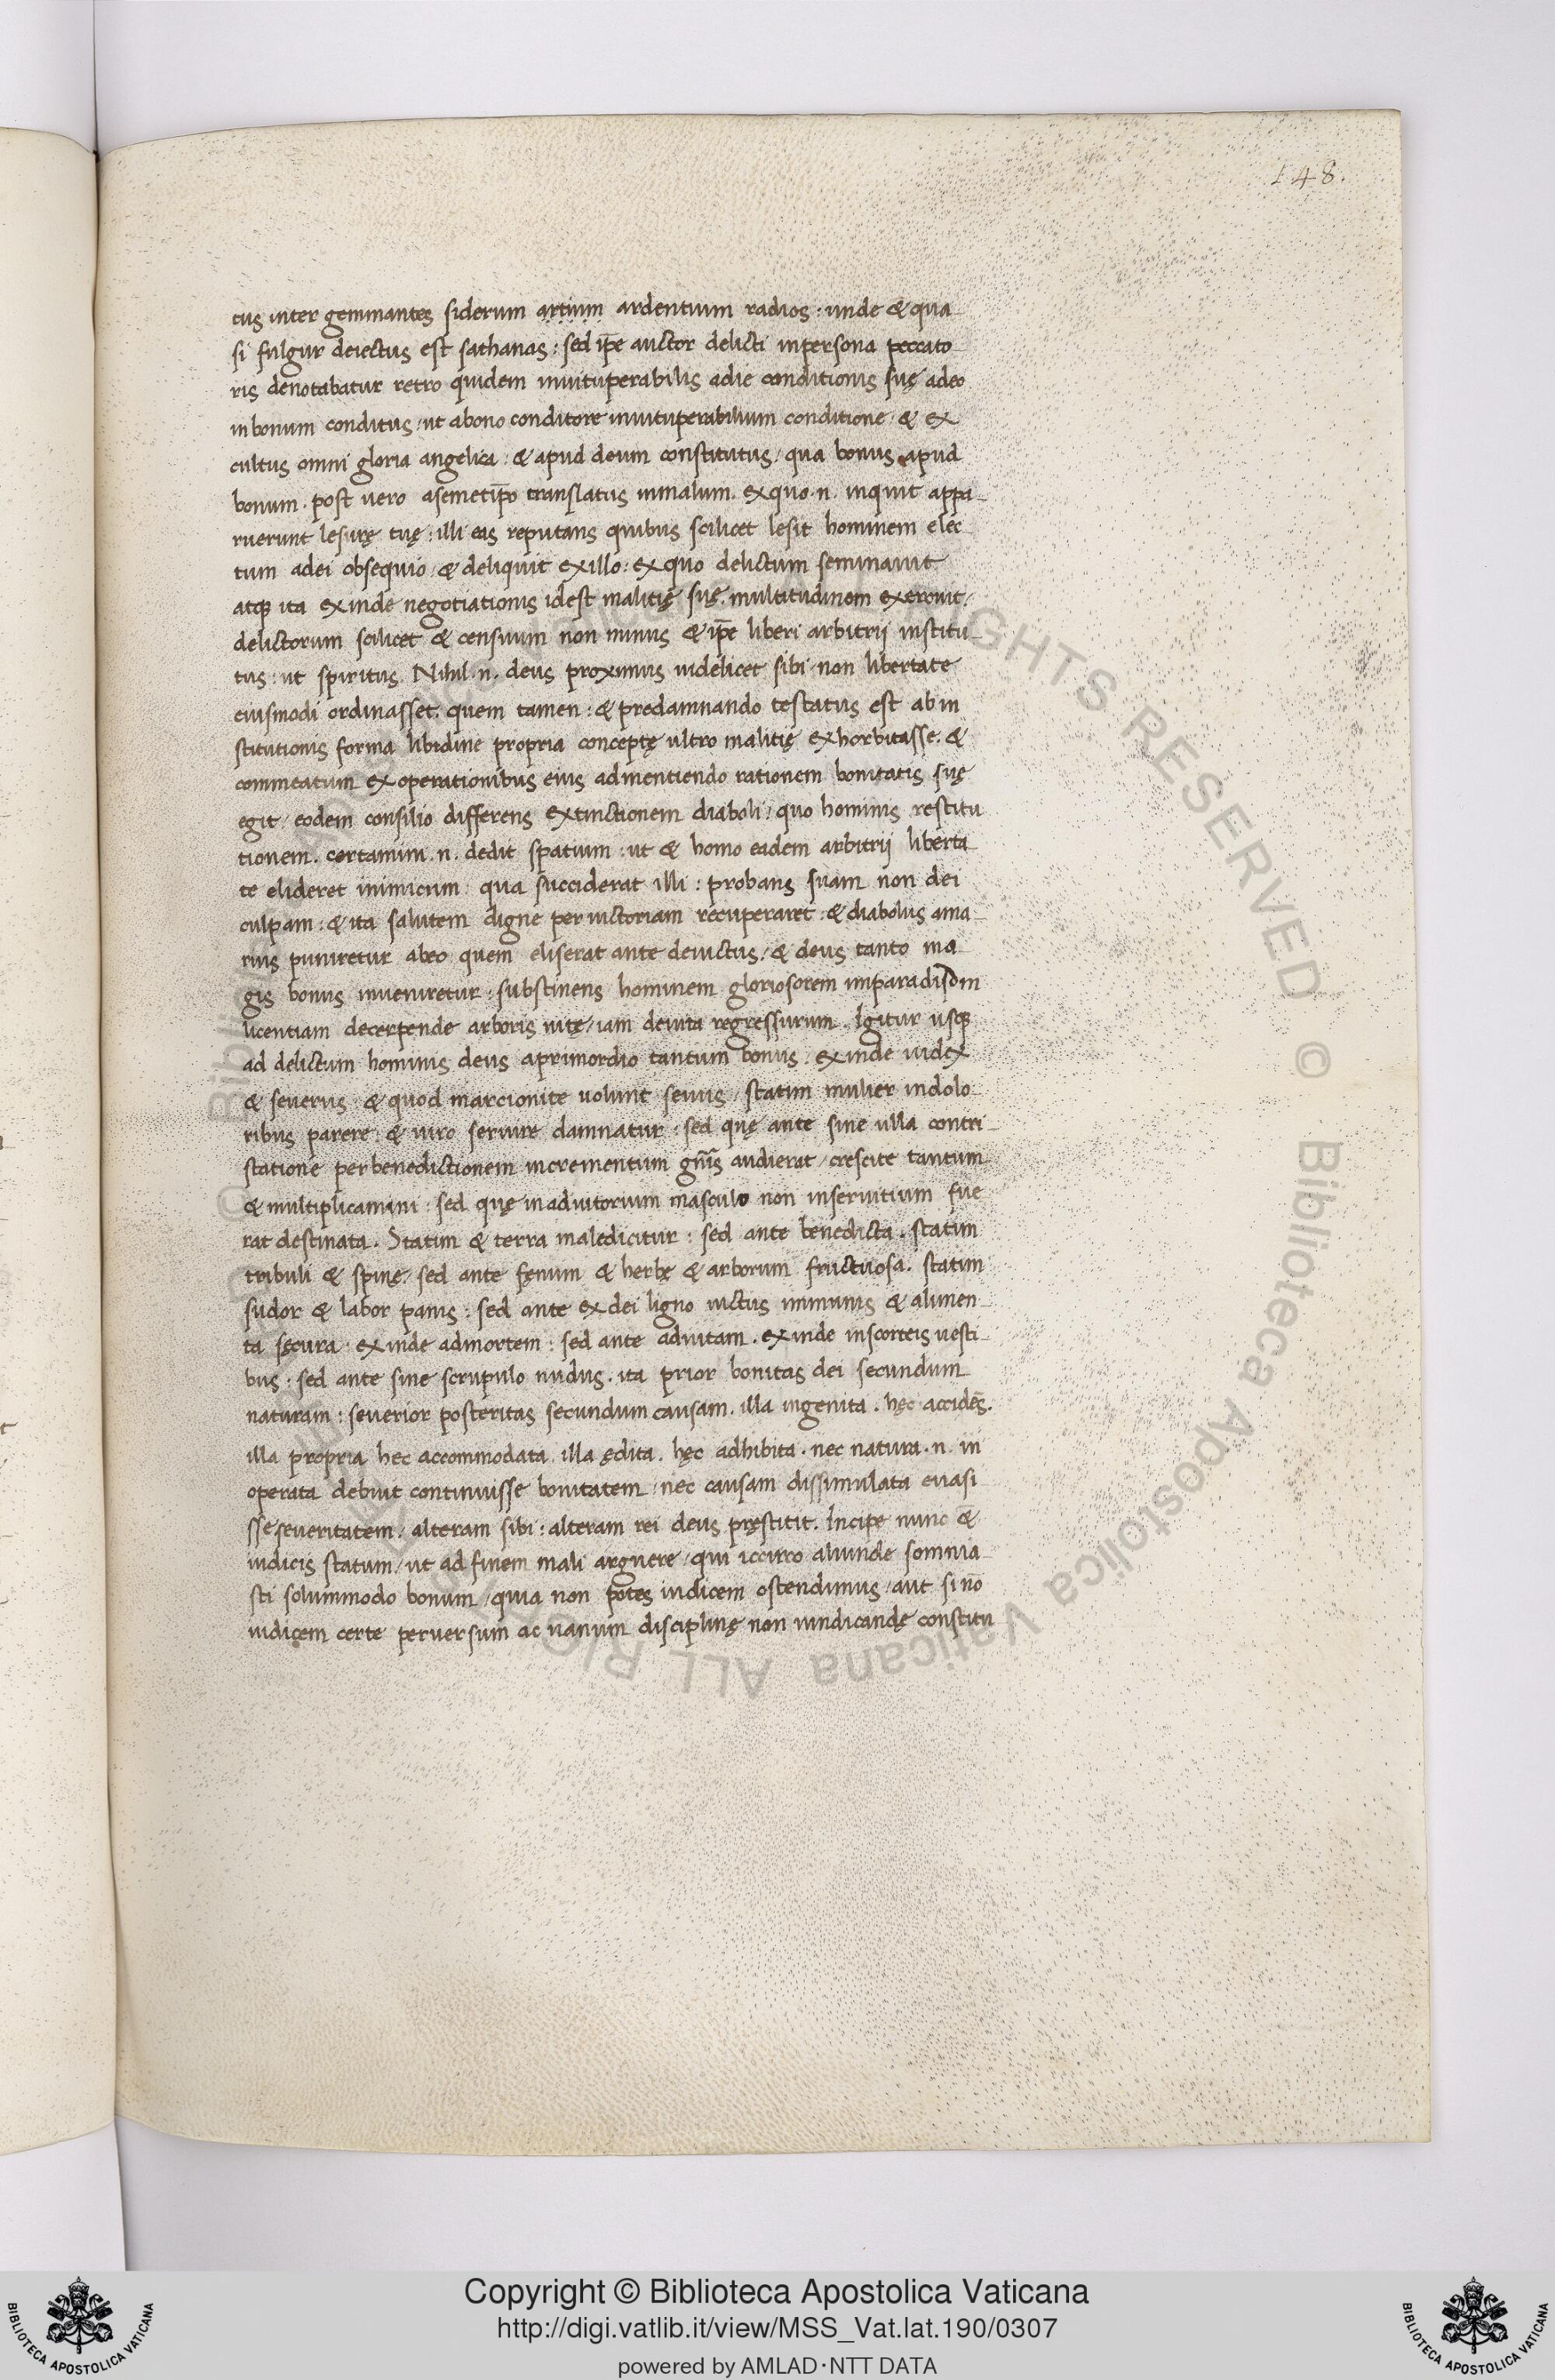 148.
tus inter gemmantes siderum artium ardentium radios: unde & qua-
si fulgur deiectus est sathanas: sed ip̄e auctor delicti inpersona peccato-
ris denotabatur retro quidem inuituperabilis adie conditionis suę adeo
inbonum conditus, ut abono conditore inuituperabilium conditione, & ex
cultus omni gloria angelica: & apud deum constitutus, qua bonus apud
bonum. post uero asemetip̄o translatus inmalum. exquo .n. inquit appa-
ruerunt lesurę tuę: illi eas reputans quibus scilicet lesit hominem elec-
tum adei obsequio, & deliquit exillo: exquo delictum seminauit
atq; ita exinde negotiationis idest malitię suę multitudinem exerouit,
delictorum scilicet & censuum non minus & ip̄e liberi arbitrij institu-
tus: ut spiritus. Nihil .n. deus proximus uidelicet sibi non libertate
eiusmodi ordinasset. quem tamen: & predamnando testatus est ab in
stitutionis forma libidine propria conceptę ultro malitię exhorbitasse. &
commeatum exoperationibus eius admentiendo rationem bonitatis suę
egit, eodem consilio differens extinctionem diaboli, quo hominis restitu
tionem. certamini .n. dedit spatium: ut & homo eadem arbitrij liberta
te elideret inimicum qua succiderat illi: probans suam non dei
culpam: & ita salutem digne peruictoriam recuperaret: & diabolus ama-
rius puniretur abeo quem eliserat ante deuictus, & deus tanto ma-
gis bonus inueniretur: substinens hominem gloriosorem inparadisom
licentiam decerpende arboris uitę, iam deuita regressurum. Igitur usq;
ad delictum hominis deus aprimordio tantum bonus. exinde iudex
& seuerus & quod marcionite uolunt seuus, statim mulier indolo-
ribus parere: & uiro seruire damnatur: sed quę ante sine ulla contri-
statione perbenedictionem incrementum gn̄is audierat, crescite tantum
& multiplicamini: sed quę inadiutorium masculo non inseruitium fue
rat destinata. Statim & terra maledicitur: sed ante benedicta. statim
tribuli & spinę, sed ante fęnum & herbę & arborum fructuosa. statim
sudor & labor panis: sed ante ex dei ligno uictus inmunis & alimen-
ta secura: exinde admortem: sed ante aduitam. exinde inscorteis uesti-
bus: sed ante sine scrupulo nudus. ita prior bonitas dei secundum
naturam: seuerior posteritas secundum causam. illa ingenita. hęc accidēs.
illa propria hec accommodata illa ędita. hęc adhibita. nec natura .n. in
operata debuit continuisse bonitatem, nec causam dissimulata euasi
sse seueritatem, alteram sibi: alteram rei deus pręstitit. Incipe nunc &
iudicis statum, ut ad finem mali arguere, qui iccirco aliunde somnia-
sti solummodo bonum, quia non potes iudicem ostendimus, aut si nō
iudicem certe peruersum ac uanum disciplinę non uindicandę constitu
Copyright © Biblioteca Apostolica Vaticana
http://digi.vatlib.it/view/MSS_Vat.lat.190/0307
powered by AMLAD·NTT DATA